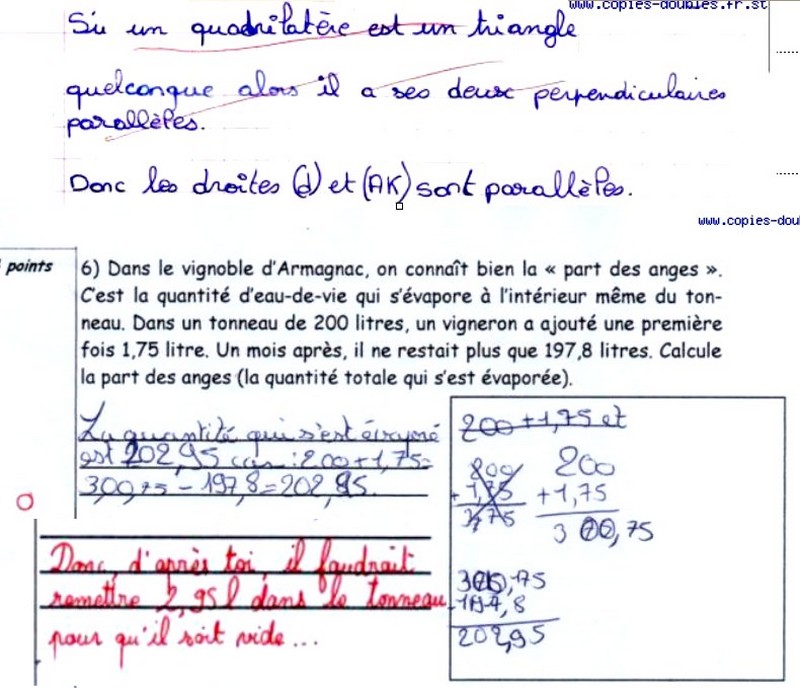 www.copies-doubles.fr.st
Si un quadrilatère est un triangle
quelconque alors il a ses deux perpendiculaires
parallèles.
Donc les droites (d) et (AK) sont parallèles.
www.copies-dou
points
6) Dans le vignoble d'Armagnac, on connaît bien la « part des anges ».
C'est la quantité d'eau-de-vie qui s'évapore à l'intérieur même du ton-
neau. Dans un tonneau de 200 litres, un vigneron a ajouté une première
fois 1,75 litre. Un mois après, il ne restait plus que 197,8 litres. Calcule
la part des anges (la quantité totale qui s'est évaporée).
La quantité qui s'est
est 202,95 car : 200+1,75=
300,75 - 197,8=202,95.
0
Donc, d'après toi, il faudrait
remettre 2,95l dans le tonneau
pour qu'il soit vide...
200+1,75 et
200
+ 1,75
200
+1,75
300,75
300,75
-197,8
202,95